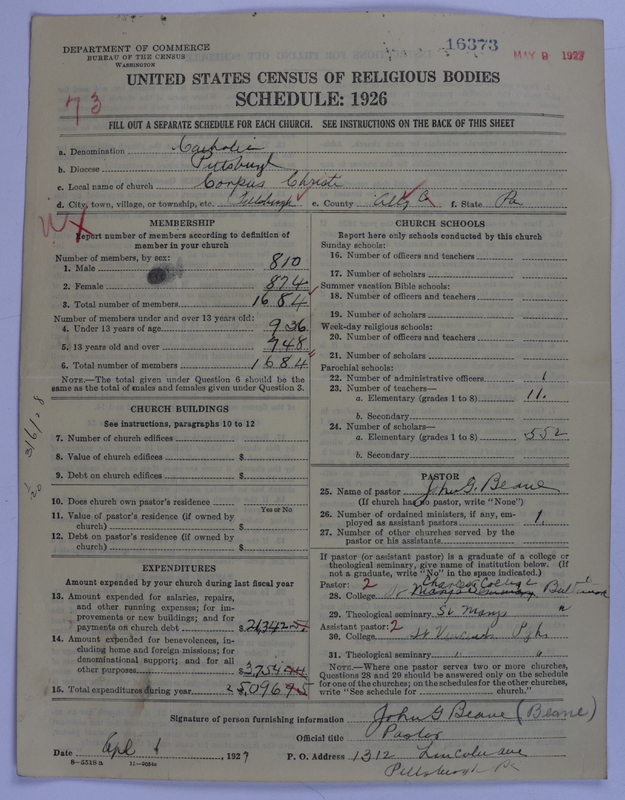 16373
MAY 9 1927
DEPARTMENT OF COMMERCE
BUREAU OF THE CENSUS
WASHINGTON
UNITED STATES CENSUS OF RELIGIOUS BODIES
SCHEDULE: 1926
73
FILL OUT A SEPARATE SCHEDULE FOR EACH CHURCH. SEE INSTRUCTIONS ON THE BACK OF THIS SHEET
a. Denomination Catholic
b. Diocese Pittsburgh
c. Local name of church Corpus Christi
d. City, town, village, or township, etc. Pittsburgh e. County Alleg Co f. State Pa
MEMBERSHIP
Report number of members according to definition of member in your church
Number of members, by sex:
1. Male 810
2. Female 874
3. Total number of members 1684
Number of members under and over 13 years old:
4. Under 13 years of age 936
5. 13 years old and over 748
6. Total number of members 1684
NOTE.—The total given under Question 6 should be the same as the total of males and females given under Question 3.
CHURCH BUILDINGS
See instructions, paragraphs 10 to 12
7. Number of church edifices
8. Value of church edifices $
9. Debt on church edifices $
10. Does church own pastor's residence
Yes or No
11. Value of pastor's residence (if owned by church) $
12. Debt on pastor's residence (if owned by church) $
EXPENDITURES
Amount expended by your church during last fiscal year
13. Amount expended for salaries, repairs, and other running expenses; for improvements or new buildings; and for payments on church debt $21,342.51
14. Amount expended for benevolences, including home and foreign missions; for denominational support; and for all other purposes $3,754.44
15. Total expenditures during year 25,096.95
CHURCH SCHOOLS
Report here only schools conducted by this church
Sunday schools:
16. Number of officers and teachers
17. Number of scholars
Summer vacation Bible schools:
18. Number of officers and teachers
19. Number of scholars
Week-day religious schools:
20. Number of officers and teachers
21. Number of scholars
Parochial schools:
22. Number of administrative officers 1
23. Number of teachers—
a. Elementary (grades 1 to 8) 11.
b. Secondary
24. Number of scholars—
a. Elementary (grades 1 to 8) 552
b. Secondary
PASTOR
25. Name of pastor John G. Beane
(If church has no pastor, write "None")
26. Number of ordained ministers, if any, employed as assistant pastors 1.
27. Number of other churches served by the pastor or his assistants
If pastor (or assistant pastor) is a graduate of a college or theological seminary, give name of institution below. (If not a graduate, write "No" in the space indicated.)
Pastor: 2
28. College St Marys Seminary Baltimore
29. Theological seminary St Marys "
Assistant pastor: 2
30. College St Vincents Pgh
31. Theological seminary " "
NOTE.—Where one pastor serves two or more churches, Questions 28 and 29 should be answered only on the schedule for one of the churches; on the schedules for the other churches, write "See schedule for church."
Signature of person furnishing information John G Beane (Beane)
Official title Pastor
Date Apl 1, 1927 P. O. Address 1312 Lincoln ave
Pittsburgh Pa
8-5518a